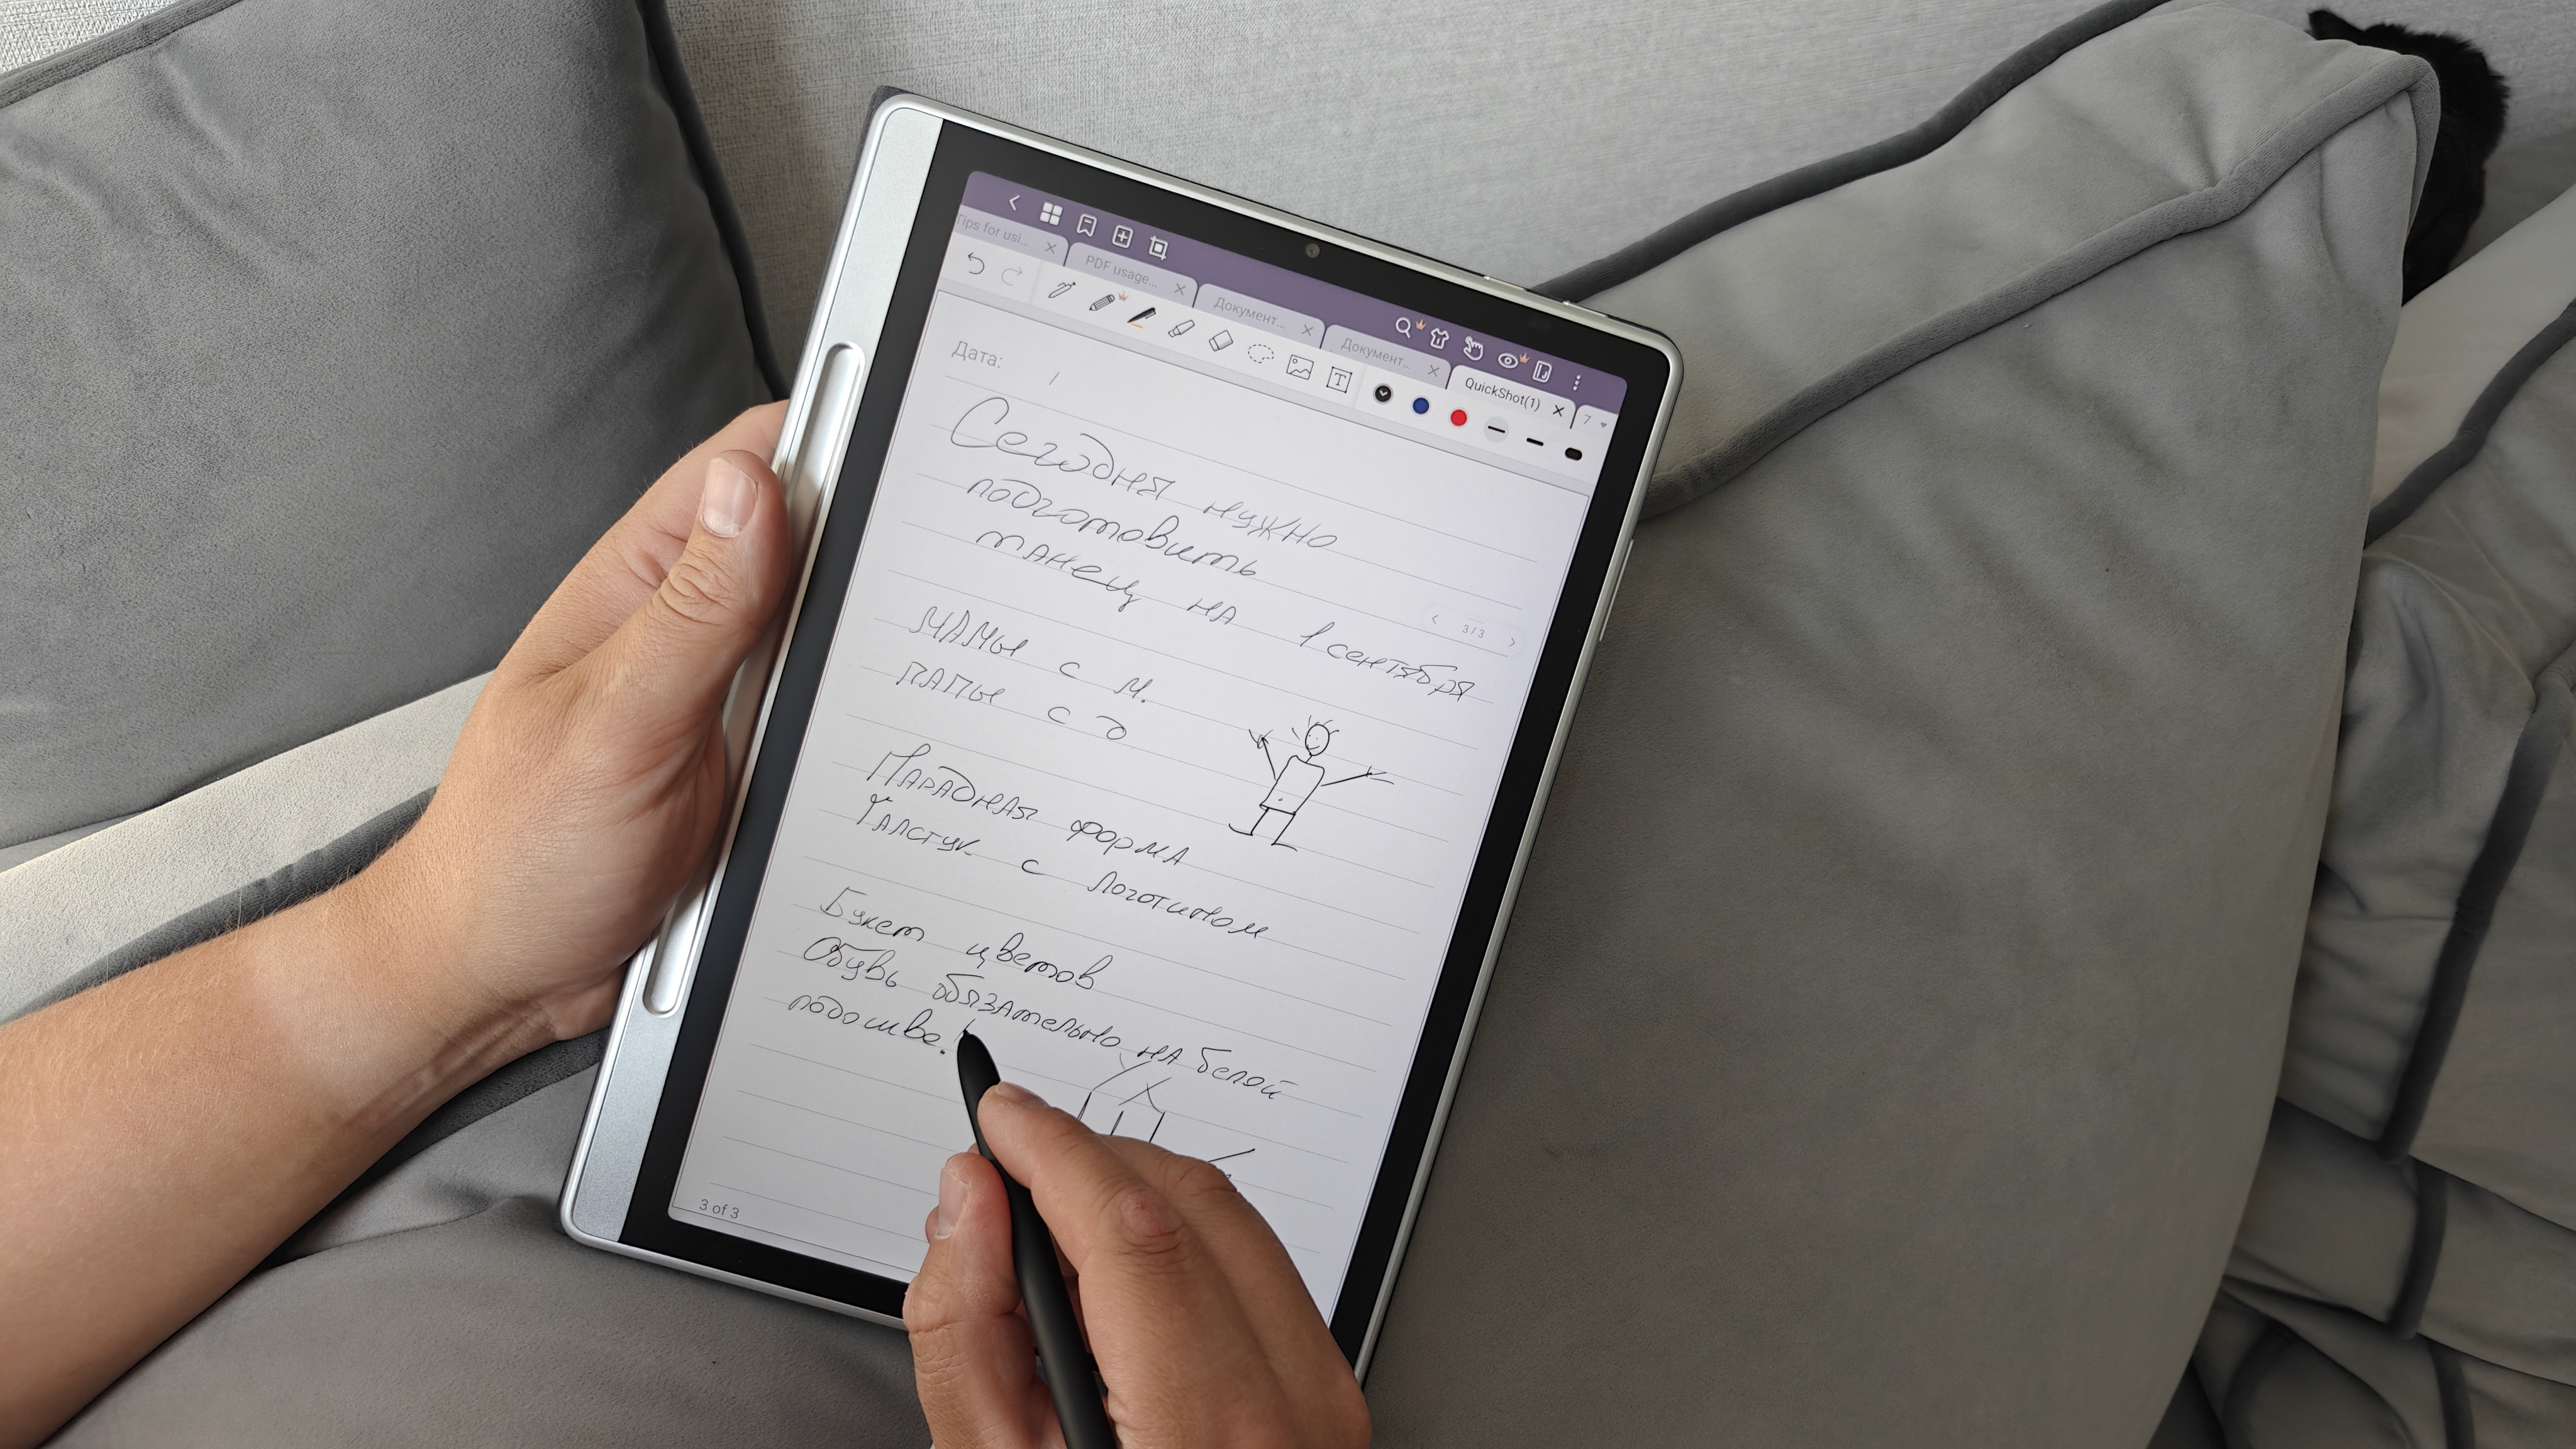 Tips for usi...
PDF usage...
Документ...
Документ...
QuickShot(1)
7
Дата:
Сегодня нужно
подготовить
танец на 1 сентября
3/3
мамы с м.
папы с д
Парадная форма
Галстук с логотипом
Букет цветов
Обувь обязательно на белой
подошве.
3 of 3